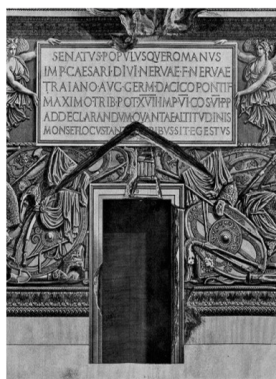 SENATVS·POPVLVSQVEROMANVS
IMP·CAESARI·DIVI·NERVAE·F·NERVAE
TRAIANO·AVG·GERM·DACICO·PONTIF
MAXIMOTRIB·POT·XVII·IMP·VI·COS·VI·PP
ADDECLARANDVMQVANTAEALTITVDINIS
MONSETLOCVSTAN IBVSSITEGESTVS